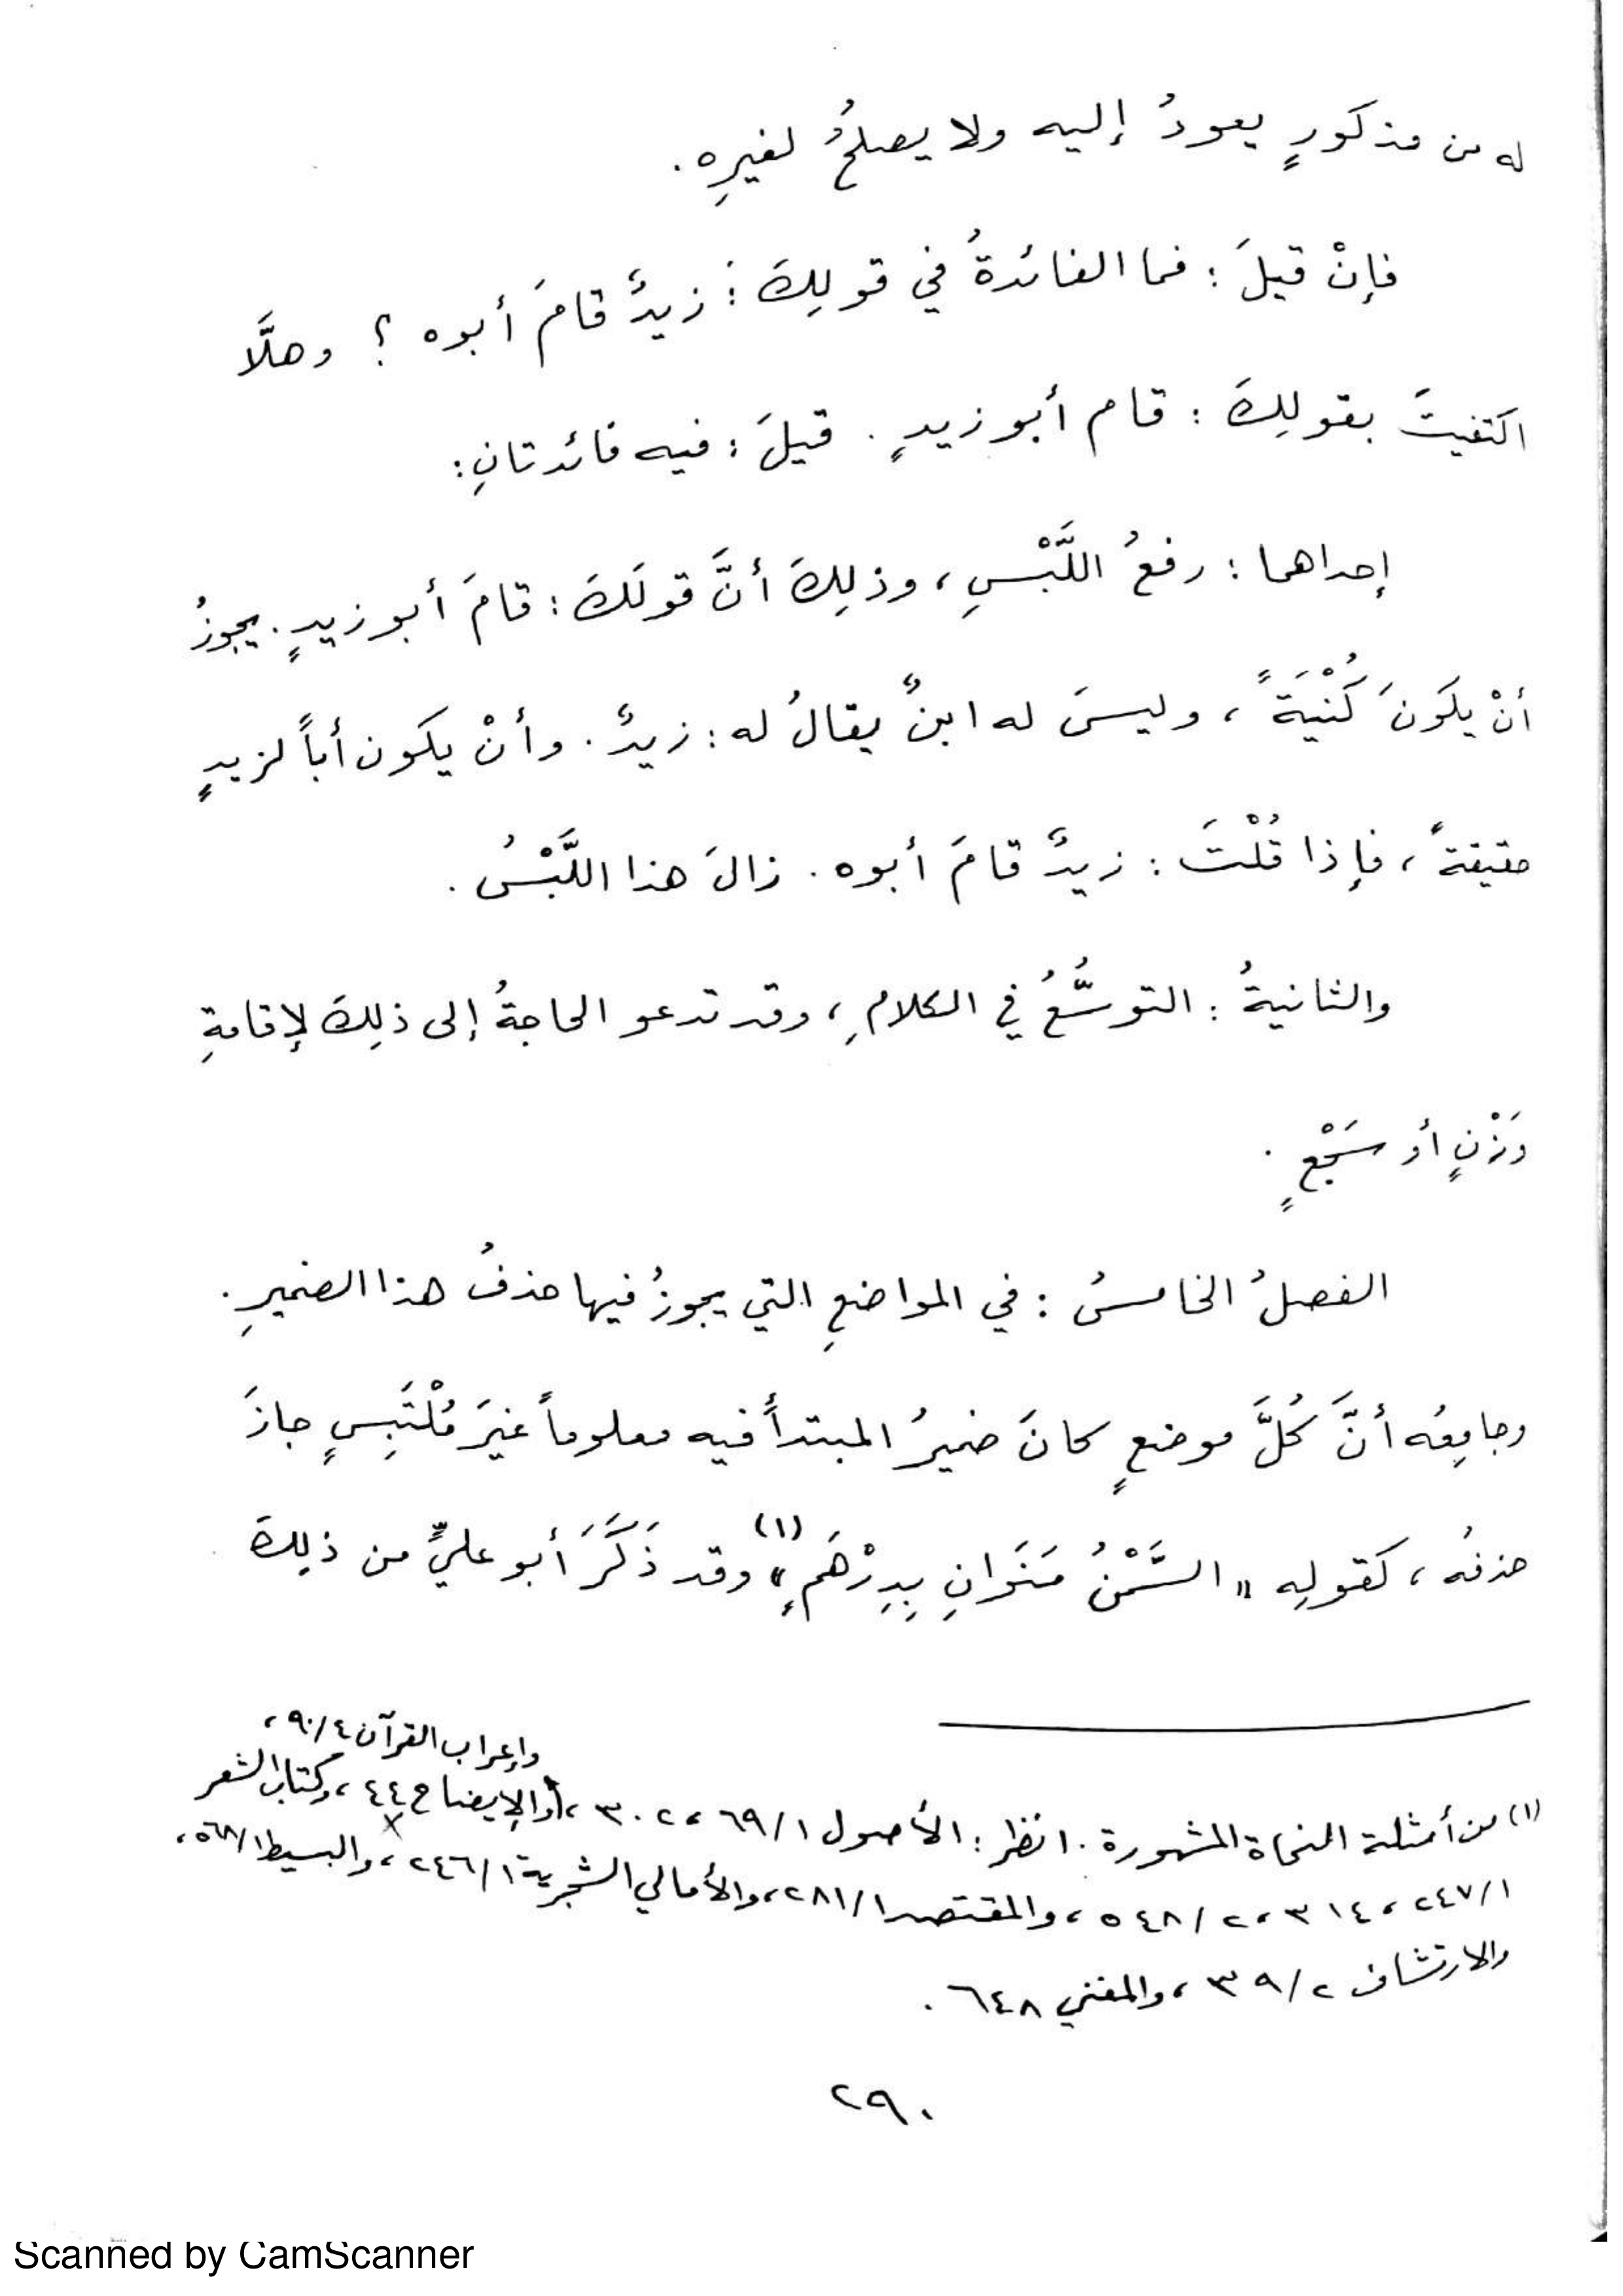 له من مذكورٍ يعودُ إليه ولا يصلحُ لغيرِه.
فإنْ قيلَ : فما الفائدةُ في قولِكَ : زيدٌ قامَ أبوه ؟ وهلَّا
اكتفيتَ بقولِكَ : قام أبو زيدٍ . قيلَ : فيه فائدتانِ :
إحداهما : رفعُ اللَّبْسِ ، وذلِكَ أنَّ قولَكَ : قامَ أبو زيدٍ . يجوزُ
أنْ يكونَ كُنْيَةً ، وليسَ له ابنٌ يقالُ له : زيدٌ . وأنْ يكون أباً لزيدٍ
حقيقةً ، فإذا قُلْتَ : زيدٌ قامَ أبوه . زالَ هذا اللَّبْسُ .
والثانيةُ : التوسُّعُ في الكلامِ ، وقد تدعو الحاجةُ إلى ذلِكَ لإقامةِ
وَزْنٍ أو سَجْعٍ .
الفصلُ الخامسُ : في المواضعِ التي يجوزُ فيها حذفُ هذا الضميرِ .
وجامِعُه أنَّ كُلَّ موضعٍ كانَ ضميرُ المبتدأ فيه معلوماً غيرَ مُلْتَبِسٍ جازَ
حذفُه ، كقولِه " السَّمْنُ مَنَوانِ بِدِرْهَمٍ " (١) وقد ذَكَرَ أبو عليٍّ من ذلِكَ
وإعراب القرآن ٤/ ٩٠ ،
(١) من أمثلة النحاة المشهورة . انظر : الأصول ١/ ٦٩ ، ٣٠٢ ، والإيضاح ٤٤ ، وكتاب الشعر
١/ ٢٤٧ ، ٣١٤ ، ٢/ ٥٤٨ ، والمقتصد ١/ ٢٨١ ، والأمالي الشجرية ١/ ٢٤٦ ، والبسيط ١/ ٥٦٨ ،
والارتشاف ٢/ ٣٩ ، والمغني ٦٤٨ .
٢٩٠
Scanned by CamScanner